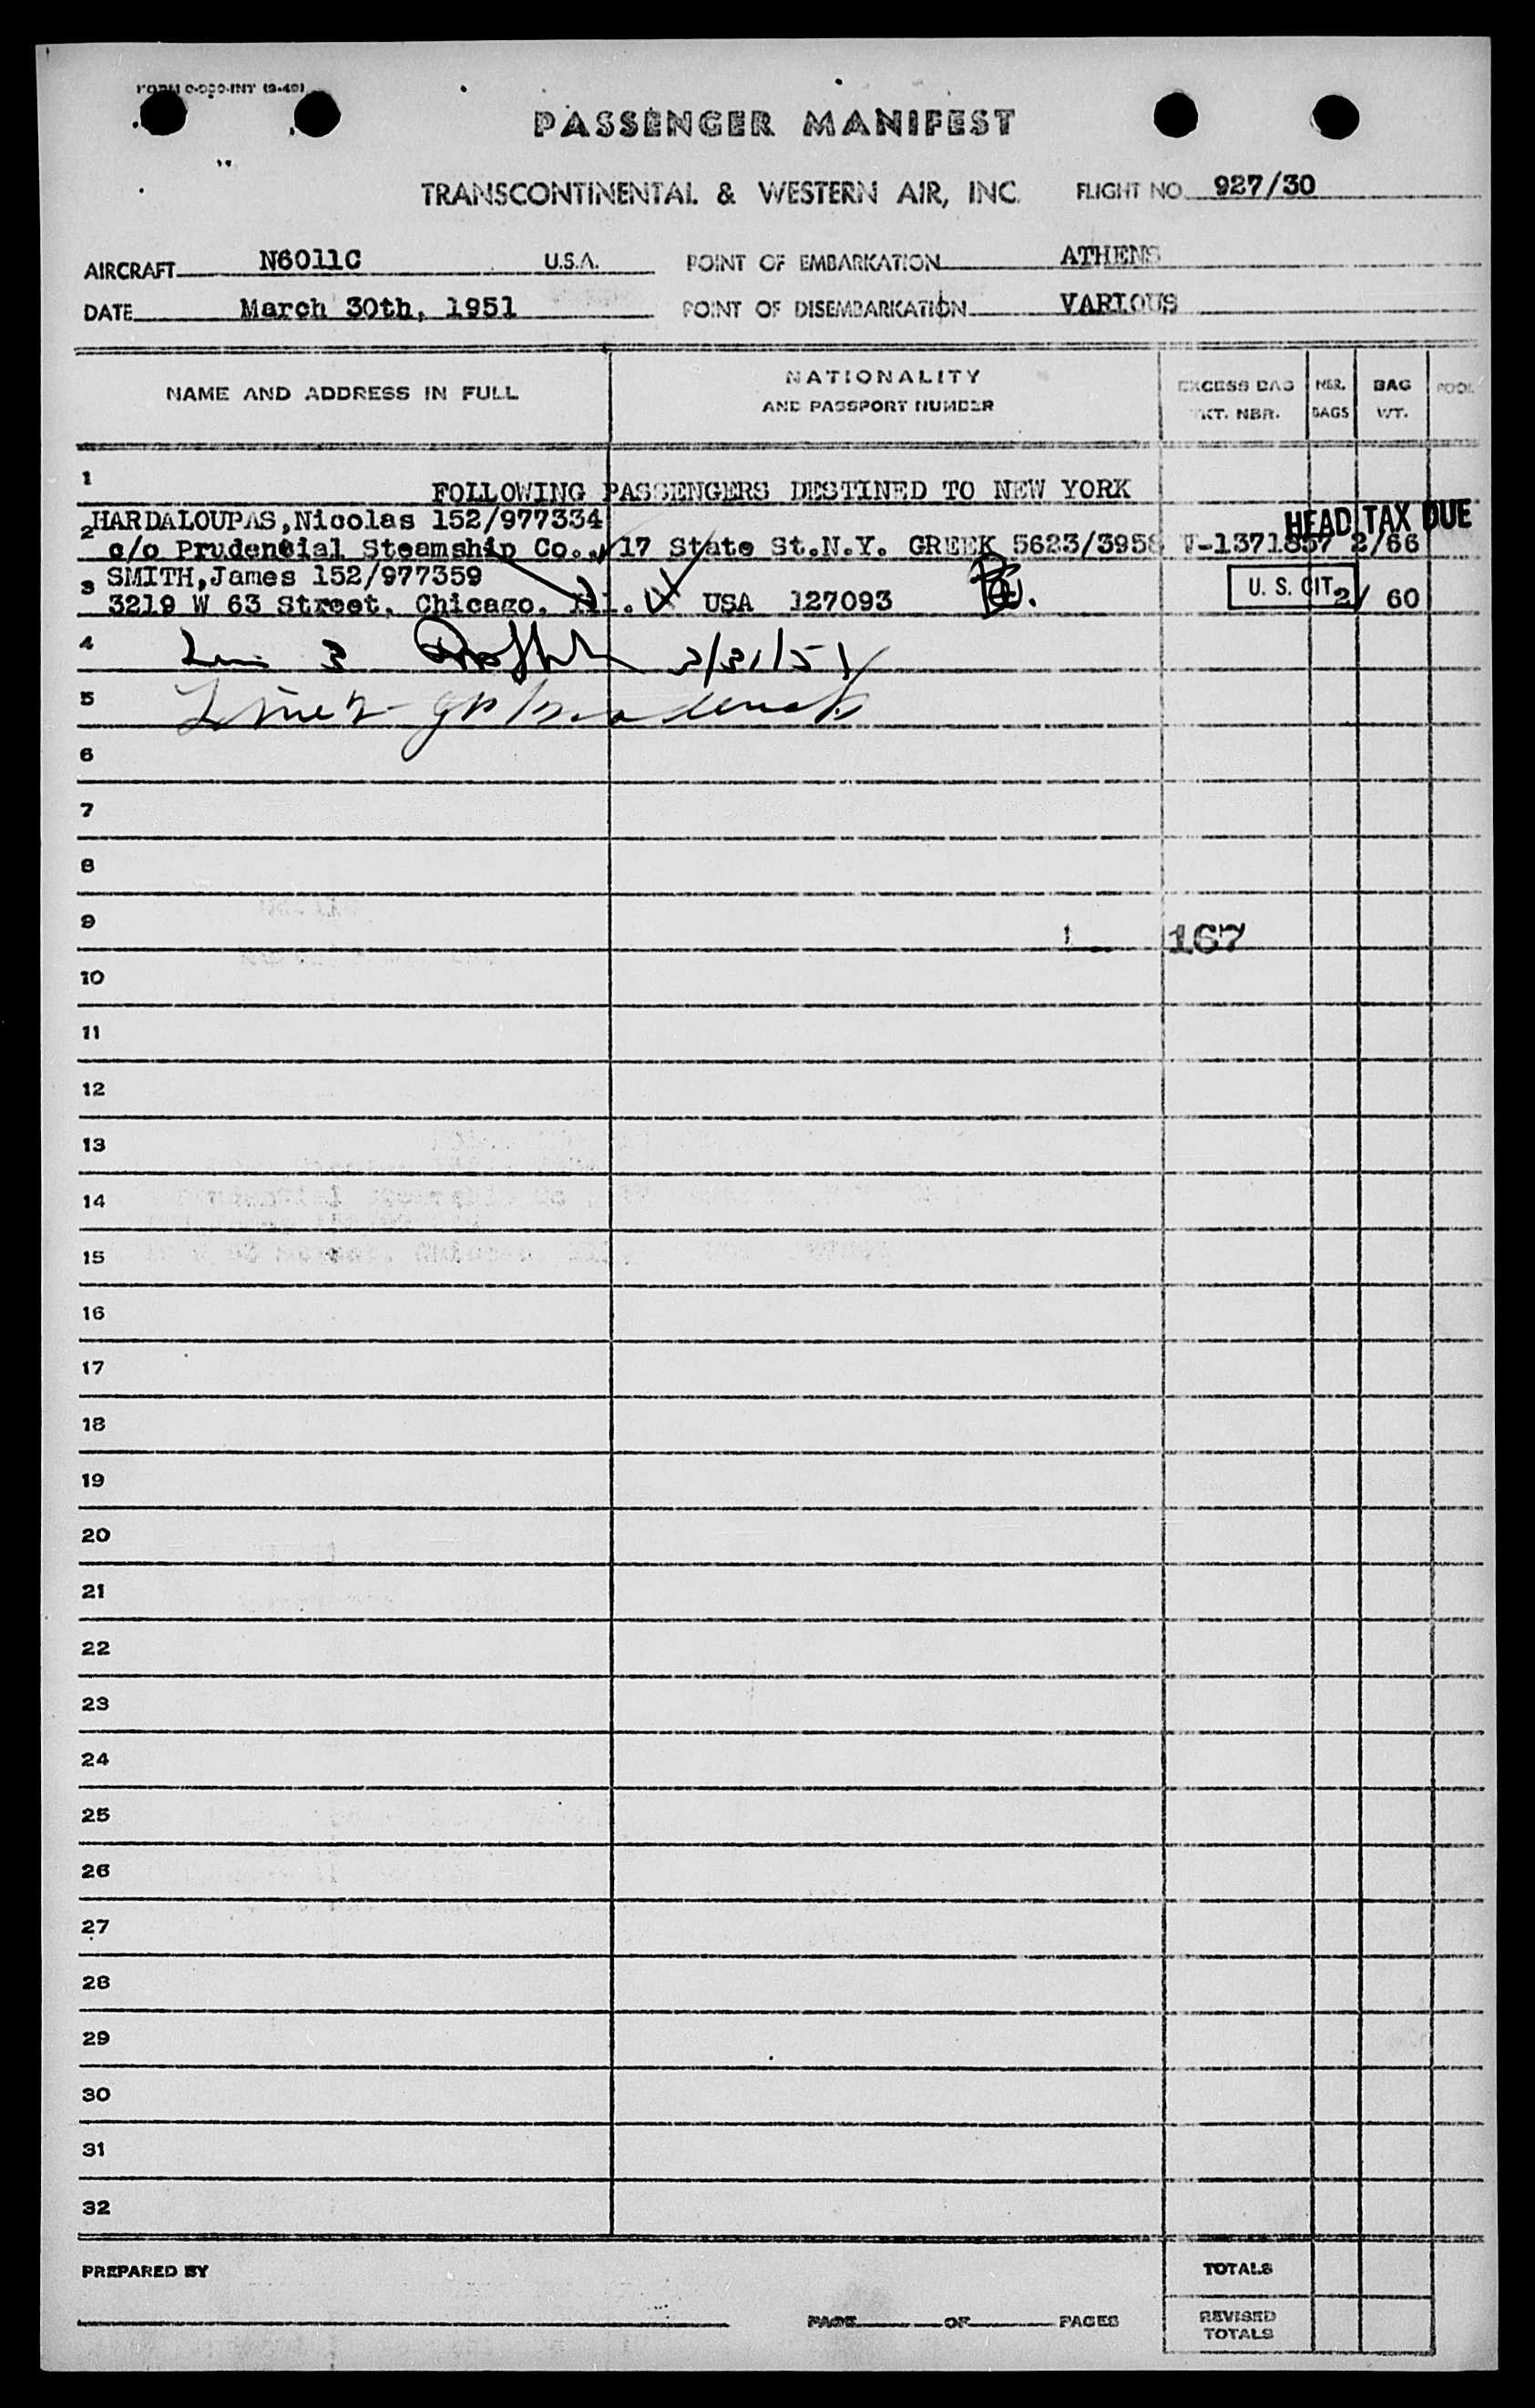 FORM O-020-INT (9-49)
PASSENGER MANIFEST
TRANSCONTINENTAL & WESTERN AIR, INC. FLIGHT NO. 927/30
AIRCRAFT N6011C U.S.A. POINT OF EMBARKATION ATHENS
DATE March 30th, 1951 POINT OF DISEMBARKATION VARIOUS
NAME AND ADDRESS IN FULL
NATIONALITY
AND PASSPORT NUMBER
EXCESS BAG
TKT. NBR.
NBR.
BAGS
BAG
WT.
POOL
1 FOLLOWING PASSENGERS DESTINED TO NEW YORK
HEAD TAX DUE
2 HARDALOUPAS,Nicolas 152/977334
c/o Prudencial Steamship Co., 17 State St.N.Y. GREEK 5623/3958 V-1371857 2/66
3 SMITH,James 152/977359
U. S. CIT
3219 W 63 Street, Chicago, Ill. USA 127093 2/ 60
4 3 3/31/51
5
6
7
8
9 167
10
11
12
13
14
15
16
17
18
19
20
21
22
23
24
25
26
27
28
29
30
31
32
PREPARED BY
TOTALS
PAGE OF PAGES
REVISED
TOTALS